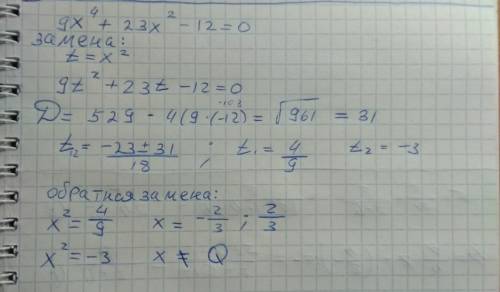 9x⁴ + 23x² - 12 = 0
замена:
t = x²
9t² + 23t - 12 = 0
D = 529 - 4(9·(-12) = √961 = 31
t₁₂ = -23 ± 31 / 18 ; t₁ = 4/9 t₂ = -3
обратная замена:
x² = 4/9 x = -2/3 ; 2/3
x² = -3 x ≠ Q